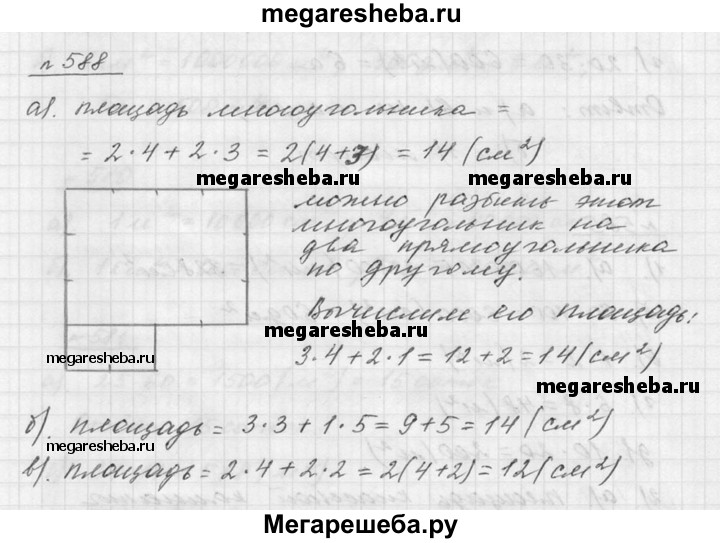 megaresheba.ru
n 588
а). площадь многоугольника =
= 2·4 + 2·3 = 2(4+3) = 14 (см²)
megaresheba.ru megaresheba.ru
можно разбить этот
многоугольник на
два прямоугольника
по другому.
Вычислим его площадь:
megaresheba.ru
megaresheba.ru
3·4 + 2·1 = 12 + 2 = 14 (см²)
megaresheba.ru
б). площадь = 3·3 + 1·5 = 9 + 5 = 14 (см²)
megaresheba.ru
в). площадь = 2·4 + 2·2 = 2(4+2) = 12 (см²)
Мегарешеба.ру